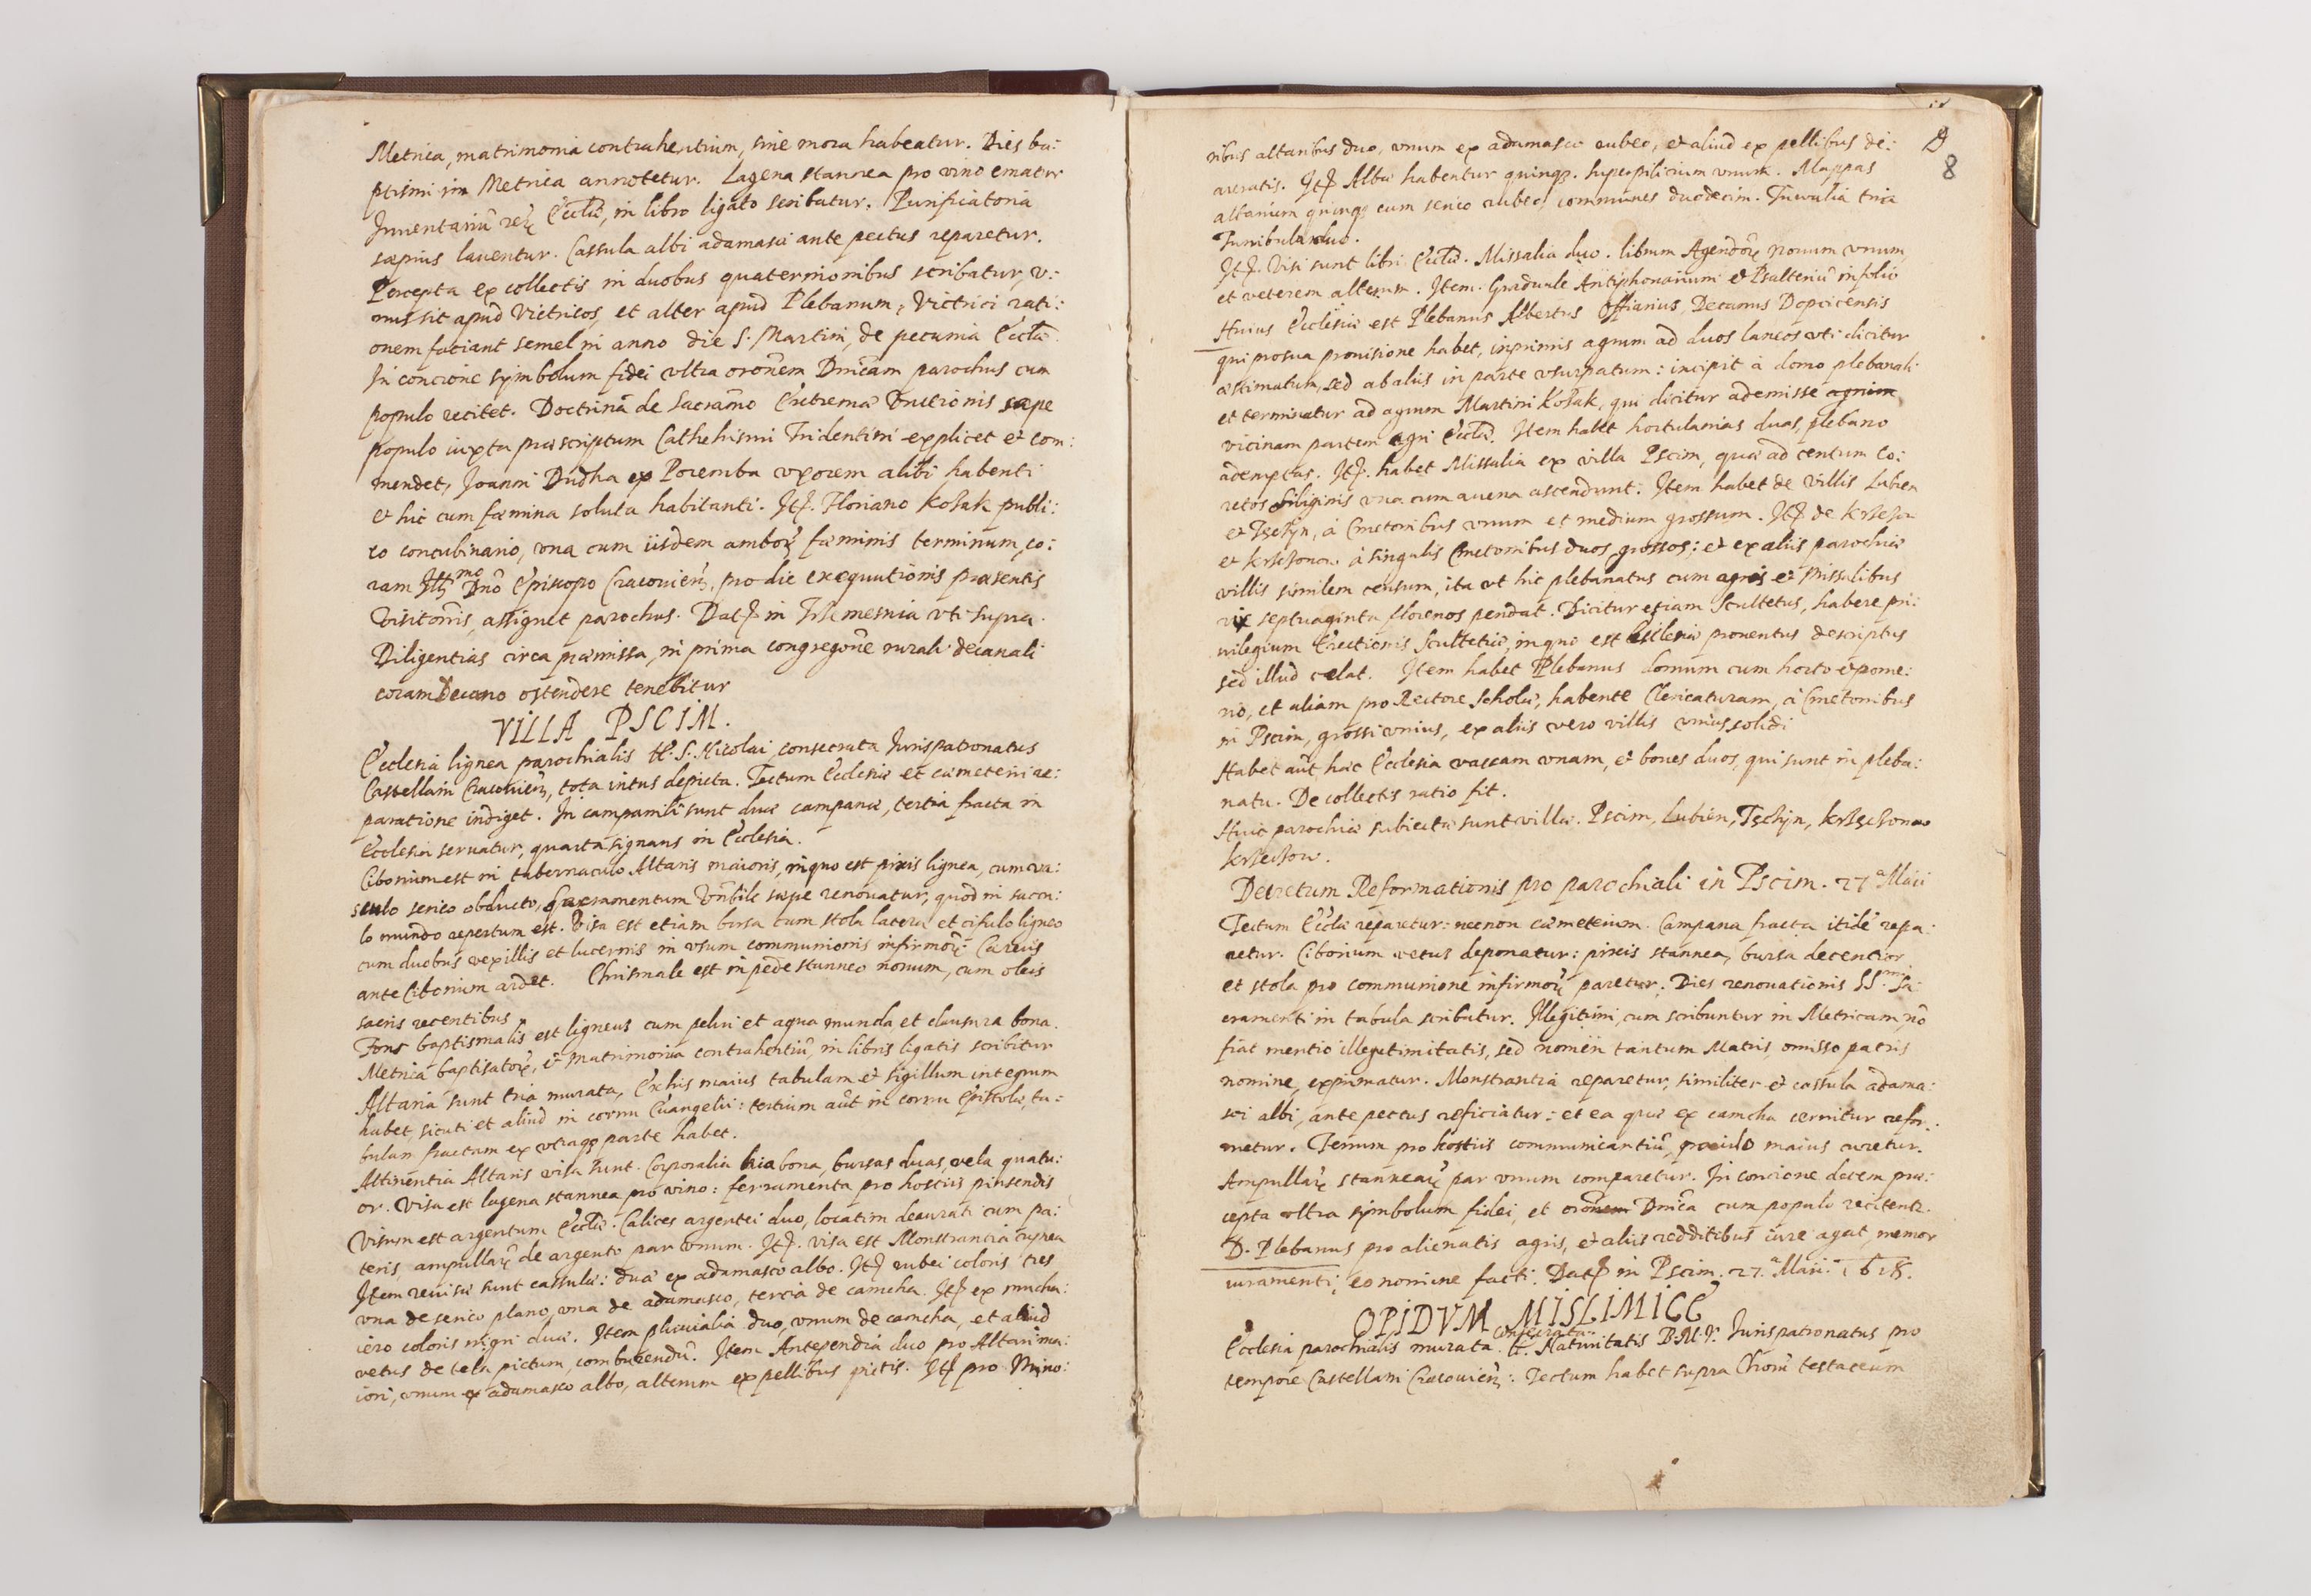 Metrica, matrimonia contrahentium, sine mora habeatur. Dies ba:
ptismi in Metrica annotetur. Lagena stannea pro vino ematur
Inventariū rerȩ Eccliæ, in libro ligato scribatur. Purificatoria
sæpius laventur. Cassula albi adamasci ante pectus reparetur.
Percepta ex collectis in duobus quaternionibus scribatur, v:
nus sit apud Vitricos, et alter apud Plebanum, Victrici rati:
onem faciant semel in anno die S. Martini, de pecunia Eccliæ
In concione symbolum fidei ultra orōnem Dnicam parochus cum
populo recitet. Doctrinā de Sacramō Extremæ Unctionis sæpe
populo iuxta præscriptum Cathehismi Tridentini explicet et com:
mendet, Joanni Dudka ex Poremba uxorem alibi habenti
et hic cum fœmina soluta habitanti. Itē. Floriano Kosak publi:
co concubinario, una cum iisdem ambor̄ fœminis terminum, co:
ram Illmo Dnō Episcopo Cracovieñ, pro die exequutionis præsentis
Visitōnis, assignet parochus. Datē in Trzemesnia uti supra.
Diligentias circa præmissa, in prima congregōne rurali decanali
coram Decano ostendere tenebitur
VILLA PSCIM.
Ecclesia lignea parochialis tt. S. Nicolai consecrata Jurispatronatus
Castellani Cracovieñ, tota intus depicta. Tectum Ecclesiæ et cœmeterii re:
paratione indiget. In campanili sunt duæ campanæ, tertia fracta in
Ecclesia servatur, quarta signans in Ecclesia.
Ciborium est in tabernaculo Altaris maioris, in quo est pixis lignea, cum va:
sculo serico obducto, Sacramentum Vnbile sæpe renovatur, quod in saccu:
lo mundo repertum est. Visa est etiam bursa cum stola latera et cifulo ligneo
cum duobus vexillis et lucernis in usum communionis infirmor̄. Cereus
ante Ciborium ardet. Chrismale est in pede stanneo novum, cum oleis
sacris recentibus
Fons baptismalis est ligneus cum pelvi et aqua munda et clausura bona.
Metrica baptisator̄, et matrimonia contrahentiū, in libris ligatis scribitur
Altaria sunt tria murata, Ex his maius tabulam et sigillum integrum
habet, sicuti et aliud in cornu Evangelii: tertium aūt in cornu Epistolæ, ta:
bulam fractam ex utraqȝ parte habet.
Attinentia Altaris visa sunt. Corporalia tria bona, bursas duas, vela quatu:
or. Visa est lagena stannea pro vino: ferramenta pro hostiis pinsendis
Visum est argentum Eccliæ. Calices argentei duo, locatim deaurati cum pa:
tenis, ampullar̄ de argento par unum. Itē. visa est Monstrantia cuprea
Item revisæ sunt cassulæ: duæ ex adamasco albo. Itē rubei coloris tres
una de serico plano, una de adamasco, tertia de camcha. Itē ex mucha:
iero coloris nigri duæ. Item pluvialia duo, unum de camcha, et aliud
vetus de tela pictum, comburendū. Item Antependia duo pro Altari ma:
iori, unum ex adamasco albo, alterum ex pellibus pictis. Itē pro Mino:
8
ribus altaribus duo, unum ex adamasco rubeo, et aliud ex pellibus de:
auratis. Itē Albæ habentur quinqȝ. Superpilicium unum. Mappas
altarium quinqȝ cum serico rubeo, communes duodecim. Tuvalia tria
Turribula duo.
Itē. Visi sunt libri Eccliæ. Missalia duo. librum Agendor̄ novum unum,
et veterem alterum. Item. Graduale Antiphonarium et Psalteriū in folio
Huius Ecclesiæ est Plebanus Albertus Offiarius, Decanus Dopcicensis
qui pro sua provisione habet, inprimis agrum ad duos laneos uti dicitur
æstimatum, sed ab aliis in parte usurpatum: incipit à domo plebanali
et terminatur ad agrum Martini Kosak, qui dicitur ademisse agrum
vicinam partem agri Eccliæ. Item habet hortulanias duas, plebano
ademptas. Itē. habet Missalia ex villa Pscim, quæ ad centum Co:
retos siliginis una cum avena ascendunt. Item habet de villis Lubien
et Tęchyn, à Cmetonibus unum et medium grossum. Itē de
et à singulis Cmetonibus duos grossos: et ex aliis parochiæ
villis similem censum, ita ut hic plebanatus cum agris et Missalibus
vix septuaginta florenos pendat. Dicitur etiam Scultetus, habere pri:
vilegium Erectionis Scultetiæ, in quo est Ecclesiæ proventus descriptus
sed illud celat. Item habet Plebanus domum cum horto et pome:
rio, et aliam pro Rectore Scholæ, habente Clericaturam, à Cmetonibus
in Pscim, grossi unius, ex aliis vero villis unius solidi
Habet aūt hæc Ecclesia vaccam unam, et boves duos, qui sunt in pleba:
natu. De collectis ratio fit.
Huic parochiæ subiectæ sunt villæ. Pscim, Lubien, Tęchyn,

Decretum Reformationis pro parochiali in Pscim. 27 a Maii
Tectum Eccliæ reparetur: necnon cœmeterium. Campana fracta itidē repa:
retur. Ciborium vetus deponatur: pixis stannea, bursa decentior
et stola pro communione infirmor̄ paretur. Dies renovationis SS.mi Sa:
cramenti in tabula scribatur. Illegitimi, cum scribuntur in Metricam, nō
fiat mentio illegitimitatis, sed nomen tantum Matris, omisso patris
nomine, exprimatur. Monstrantia reparetur, similiter et cassula adama:
sci albi, ante pectus reficiatur: et ea quæ ex camcha cernitur refor:
metur. Ferrum pro hostiis communicantiū, paulo maius curetur.
Ampullar̄ stannear̄ par unum comparetur. In concione decem præ:
cepta ultra symbolum fidei, et orōnem Dnica cum populo recitent.
D. Plebanus pro alienatis agris, et aliis redditibus iure agat, memor
iuramenti, eo nomine facti. Datē in Pscim. 27. a Maii. 1618.
OPIDVM MISLIMICE
consecrata
Ecclesia parochialis murata tt. Nativitatis B.M.V. Jurispatronatus pro
tempore Castellani Cracovieñ. Tectum habet supra Chorū testaceum